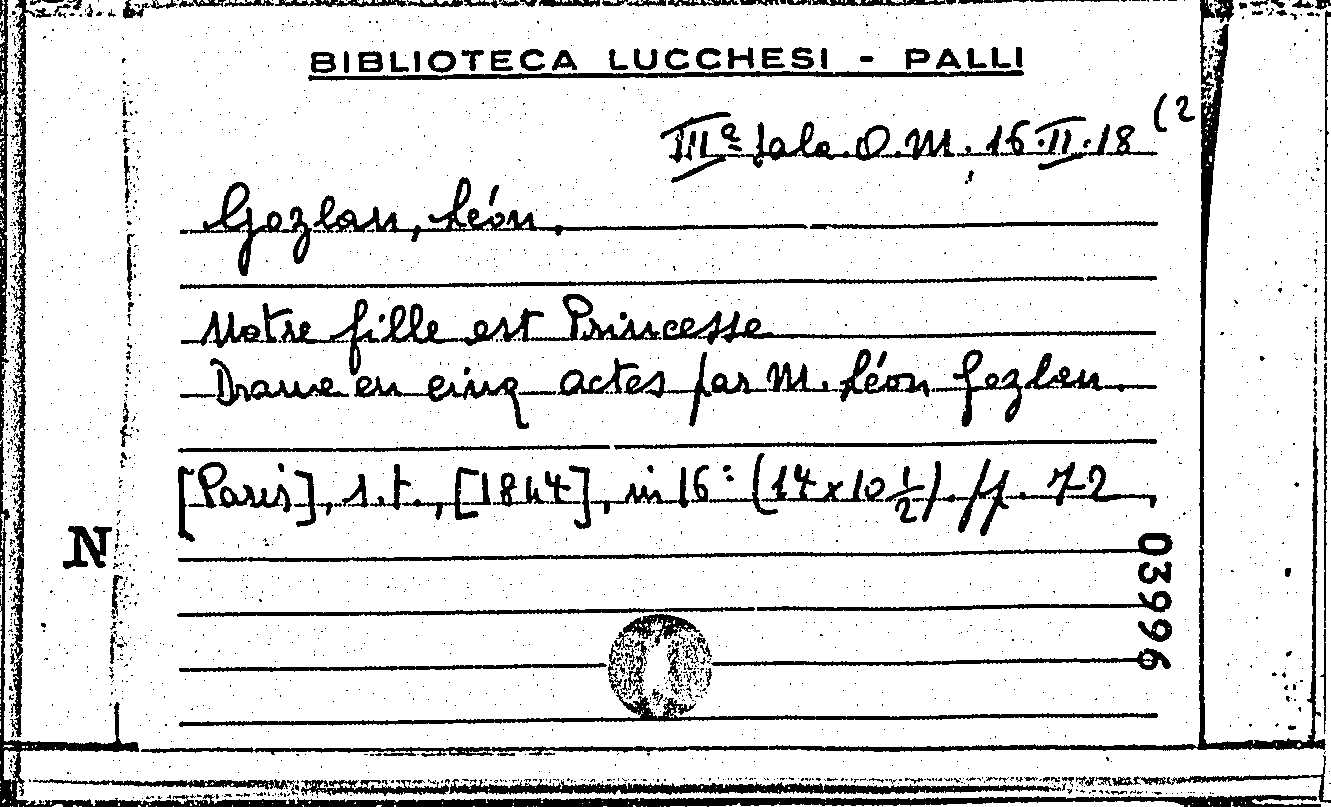 BIBLIOTECA LUCCHESI - PALLI
IIIª Sala. O. M. 16. II. 18 (2
Gozlan, Léon.
Notre fille est Princesse
Drame en cinq actes par M. Léon Gozlan.
[Paris], s.t., [1844], in 16º (14 x 10 1/2). pp. 72
N
03996